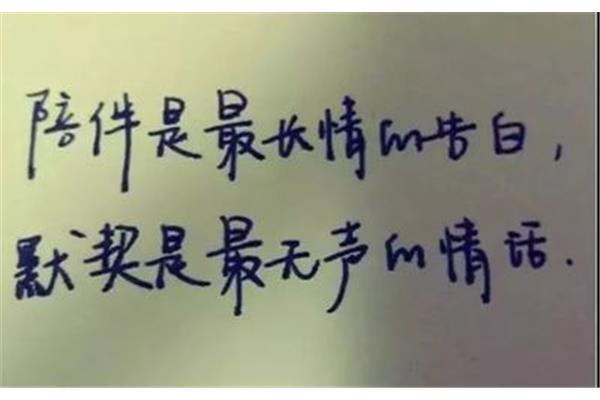 陪件是最长情的告白,
默契是最无声的情话.